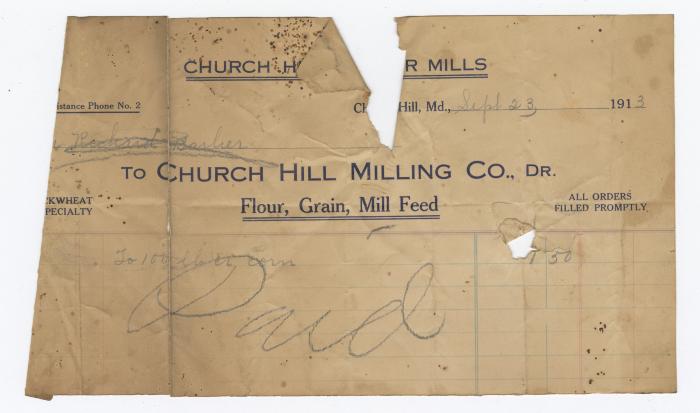 CHURCH H R MILLS
istance Phone No. 2
Ch Hill, Md., Sept 23, 1913
Richard Barlier
TO CHURCH HILL MILLING CO., DR.
CKWHEAT
PECIALTY
Flour, Grain, Mill Feed
ALL ORDERS
FILLED PROMPTLY
To 100 corn 1 50
Paid